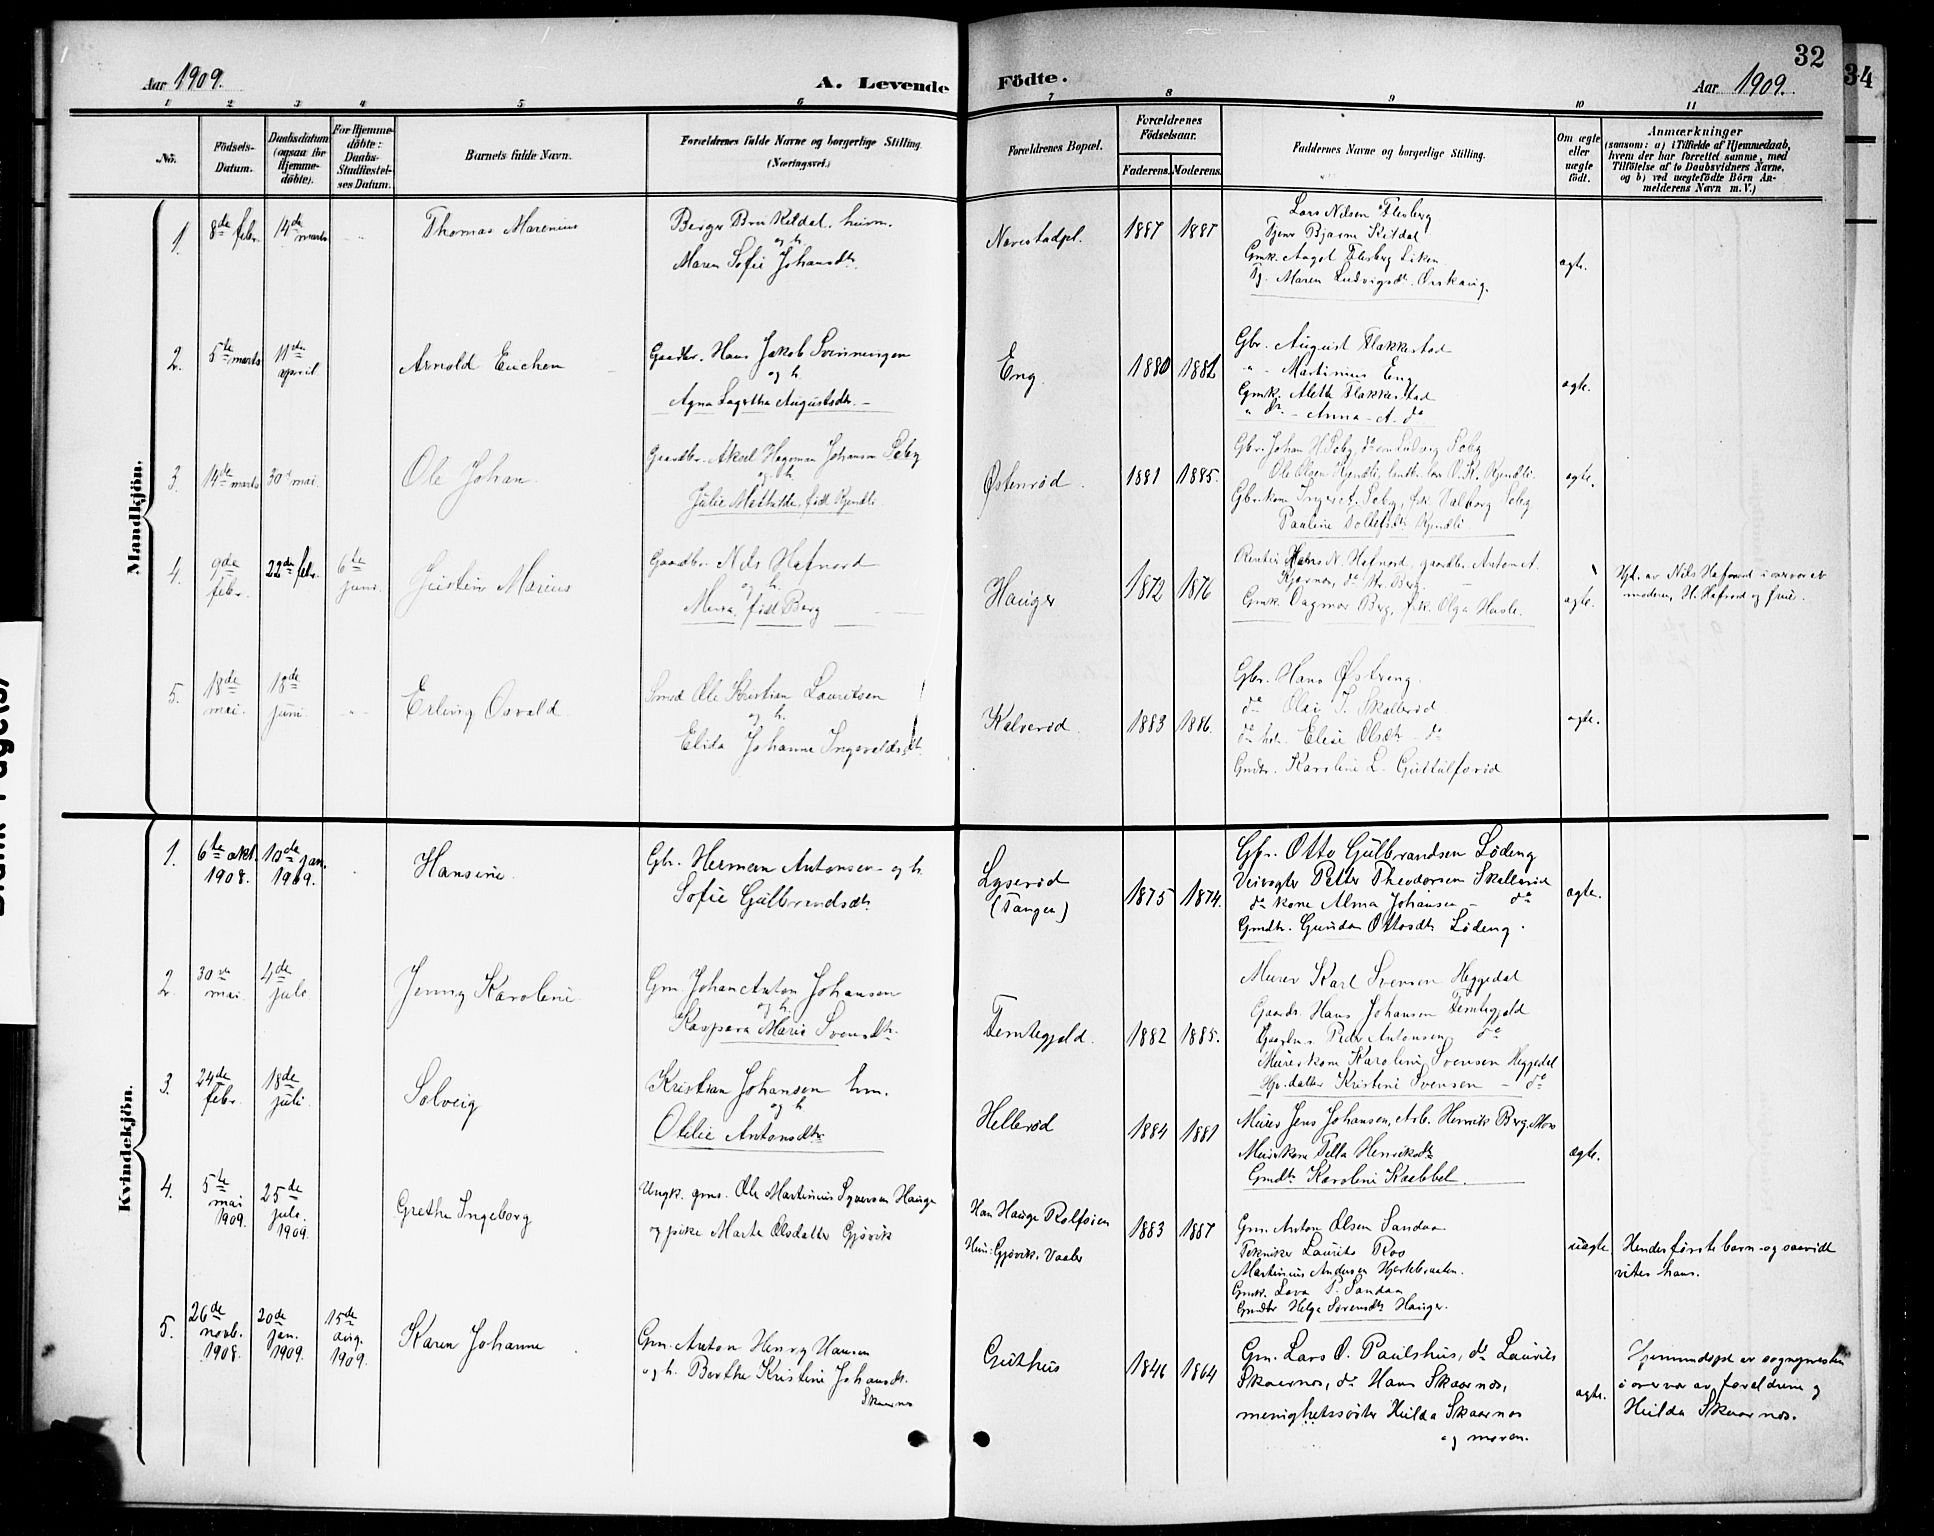 32
34
Aar 1909.
A. Levende Födte.
Aar 1909.
1 2 3 4 5 6 7 8 9 10 11
No.
Födsels-
Datum.
Daabsdatum
(ogsaa for
Hjemme-
döbte).
For Hjemme-
döbte:
Daabs-
Stadfæstel-
ses Datum.
Barnets fulde Navn.
Forældrenes fulde Navne og borgerlige Stilling
(Næringsvei.)
Forældrenes Bopæl.
Forældrenes
Födselsaar.
Faderens. Moderens.
Faddernes Navne og borgerlige Stilling.
Om ægte
eller
uægte
födt.
Anmærkninger
(saasom: a) i Tilfælde af Hjemmedaab,
hvem der har forrettet samme, med
Tilföielse af to Daabsvidners Navne,
og b) ved uægtefödte Börn An-
melderens Navn m. V.)
Mandkjön.
1. 8de febr. 14de marts
Thomas Marenius
Birger Kildal.
og h.
Maren Sofie Johansdtr.
Navestadpl.
1887 1887
Lars Nilsen Flesberg
Tjener Bjarne Kildal
Gmk. Aagot Flesberg
Maren Ludvigsdtr.
ægte.
2. 5te marts 11te april
Arnold
Gaardbr. Hans Jakob
og h.
Agna Lagertha Augustsdtr.
Eng.
1880 1882
Gbr. August Flakkestad
" - Martinius Eng
Gmk. Aletta Flakkestad
" do - Anna - A. do
ægte.
3. 14de marts 30te mai.
Ole Johan.
Gaardbr. Aksel Hageman Johansen
og h.
Julie Mathilde, født
Østenrød.
1881 1885.
Gbr. Johan
Ole Olsen
Gbr.kone
Pauline
ægte.
4. 9de febr. 22de febr. 6te juni
Marius
Gaardbr. Nils Hafnord
og h.
født Berg
Hauger
1872 1876
Rentier Hans N. Hafnord, gaardbr. Anton A.
Kjærnes, do Berg.
Gmk. Dagmar Berg, fr. Olga Husle.
ægte.
Hjd. av Nils Hafnord i overvær av
moderen, H. Hafnord og frue.
5. 18de mai. 18de juni.
Erling Osvald
Smed Ole Kristian Lauritsen
og h.
Elida Johanne Ingvaldsdtr.
Kalverød.
1883 1886.
Gbr. Hans Østreng.
do Olai J. Skallerød
Elise Olsdtr. do
Gmdtr. Karoline L. Guttulfsrød
ægte.
Kvindekjön.
1. 6te okt. 1908. 10de jan. 1909.
Hansine.
Gbr. Herman Antonsen og h.
Sofie Gulbrandsdtr.
Lyserød
(Tangen)
1875 1874.
Gbr. Otto Gulbrandsen Lødeng
Veivogter Petter Theodorsen Skallerød
do kone Alma Johansen - do
Gmdtr. Gunda Ottosdtr. Lødeng.
ægte.
2. 30te mai. 4de juli
Jenny Karoline
Gm. Johan Anton Johansen
og h.
Kaspara Marie Svensdtr.
Femtegjeld.
1882 1885.
Murer Karl Svensen Heggedal
Gaardbr. Hans Johansen Femtegjeld
Peder Antonsen do
Murerskone Karoline Svensen Heggedal
datter Kristine Svensen - do
3. 24de febr. 18de juli.
Solveig
Kristian Johansen hm.
og h
Otilie Antonsdtr.
Hellerød
1884 1881
Murer Jens Johansen, Arb. Henrik Berg, Mos
Murerkone Tella Henriksdtr
Gmdtr. Karoline Kaabbel.
ægte.
4. 5te mai 1909. 25de juli. 1909.
Grethe Ingeborg
Ungk. gms. Ole Martinius Syversen Hauge
og pike Marte Olsdatter Gjøvik
Han Hauge Rolfsøien
Hun: Gjøvik. Vaaler
1883 1887
Gm. Anton Olsen Sandaa
Tekniker Laurits Roo
Martinius Andersen Hjertebraaten.
Gmk. Lova P. Sandaa
Gmdtr Helga Sørensdtr Hauger.
uægte.
Hendes første barn - og saavidt
vites hans.
5. 26de novb. 1908. 20de jan. 1909. 15de aug. 1909.
Karen Johanne
Gm. Anton Henry Hansen
og h. Berthe Kristine Johansdtr.
Skaarnes
Guthus
1846 1864
Gm. Lars O. Paulshus, do Laurits
Skaarnes, do Hans Skaarnes,
menighetssøster Hulda Skaarnes
og moren.
ægte.
Hjemmedøpt av sognepresten
i overvær av forældrene og
Hulda Skaarnes.